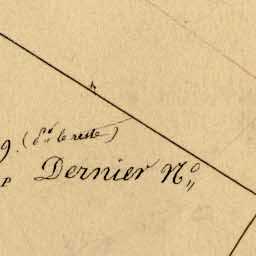 9. (Sd le reste)
P Dernier No